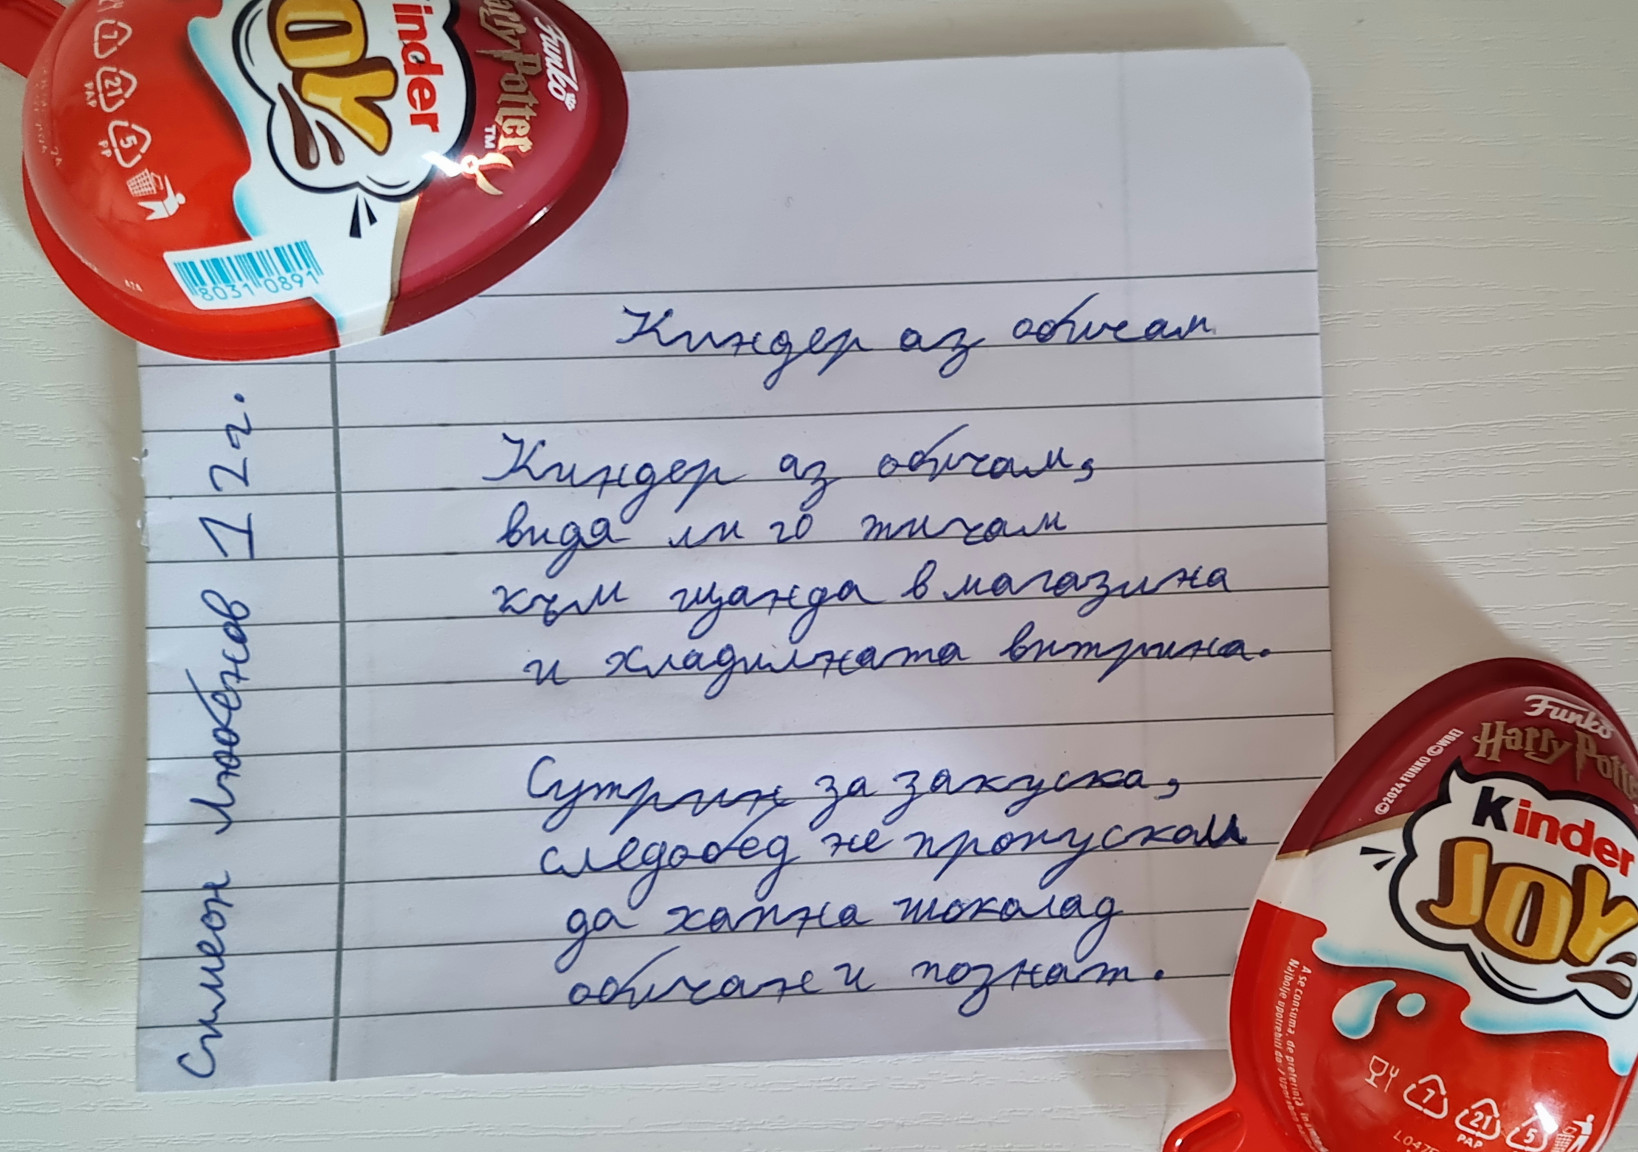 Funko
Harry Potter™
Kinder
JOY
7
21
PAP
5
PP
8031 0891
Киндер аз обичам
Киндер аз обичам,
видя ли го тичам
към щанда в магазина
и хладилната витрина.
Сутрин за закуска,
следобед не пропускам
да хапна шоколад
обичан и познат.
Симеон Любенов 12г.
Funko
Harry Potter
©2024 FUNKO ©WBEI
Kinder
JOY
A se consuma de preferinţă
Najbolje upotrebiti do /
7
21
PAP
5